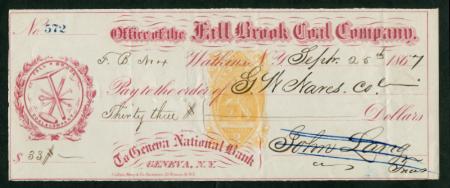 No. 572
Office of the Fall Brook Coal Company,
F. B. No 4
Watkins, N.Y. Sept. 25th 1867
Pay to the order of G W Nares. co.
Thirty three Dollars
To Geneva National Bank
GENEVA, N.Y.
$ 33
John Lang
Treas